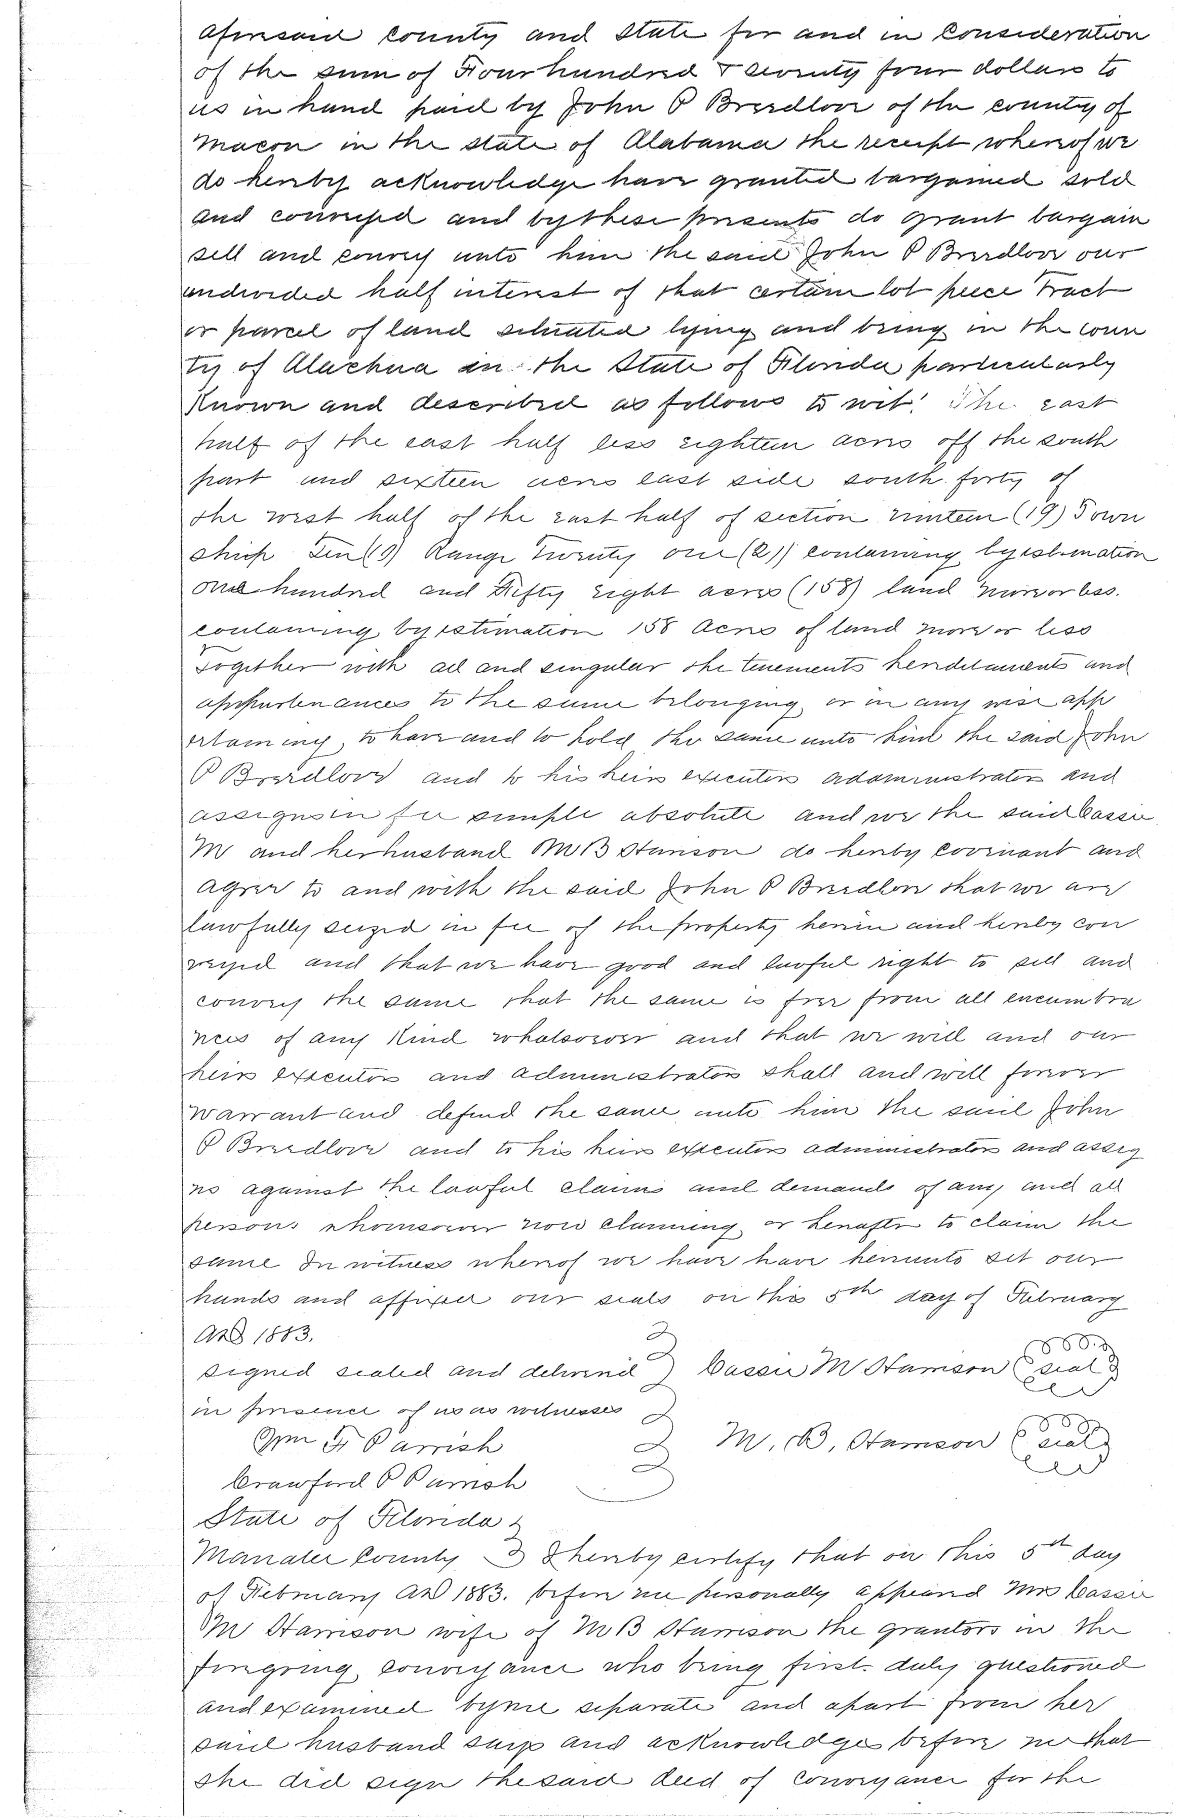 aforesaid county and State for and in Consideration
of the sum of Four hundred & seventy four dollars to
us in hand paid by John P Breedlove of the county of
Macon in the state of Alabama the receipt whereof we
do hereby acknowledge have granted bargained sold
and conveyed and by these presents do grant bargain
sell and convey unto him the said John P Breedlove our
undivided half interest of that certain lot piece Tract
or parcel of land situated lying and being in the coun
ty of Alachua in the State of Florida particularly
Known and described as follows to wit: The east
half of the east half less eighteen acres off the south
part and sixteen acres east side south forty of
the west half of the east half of section nineteen (19) Town
ship Ten (10) Range Twenty one (21) containing by estimation
one hundred and Fifty eight acres (158) land more or less.
containing by estimation 158 acres of land more or less
Together with all and singular the tenements hereditaments and
appurtenances to the same belonging or in any wise app
ertaining, to have and to hold the same unto him the said John
P Breedlove and to his heirs executors administrators and
assigns in fee simple absolute and we the said Cassie
M and her husband M B Harrison do hereby covenant and
agree to and with the said John P Breedlove that we are
lawfully seized in fee of the property herein and hereby con
veyed and that we have good and lawful right to sell and
convey the same that the same is free from all encumbra
nces of any Kind whatsoever and that we will and our
heirs executors and administrators shall and will forever
warrant and defend the same unto him the said John
P Breedlove and to his heirs executors administrators and assig
ns against the lawful claims and demands of any and all
persons whomsoever now claiming or hereafter to claim the
same In witness whereof we have have hereunto set our
hands and affixed our seals on this 5th day of February
AD 1883.
signed sealed and delivered Cassie M Harrison (seal)
in presence of us as witnesses
Wm F Parrish M. B. Harrison (seal)
Crawford P Parrish
State of Florida
Manatee County I hereby certify that on this 5th day
of February AD 1883. before me personally appeared Mrs Cassie
M Harrison wife of M B Harrison the grantors in the
foregoing conveyance who being first duly questioned
and examined by me separate and apart from her
said husband says and acknowledges before me that
she did sign the said deed of conveyance for the